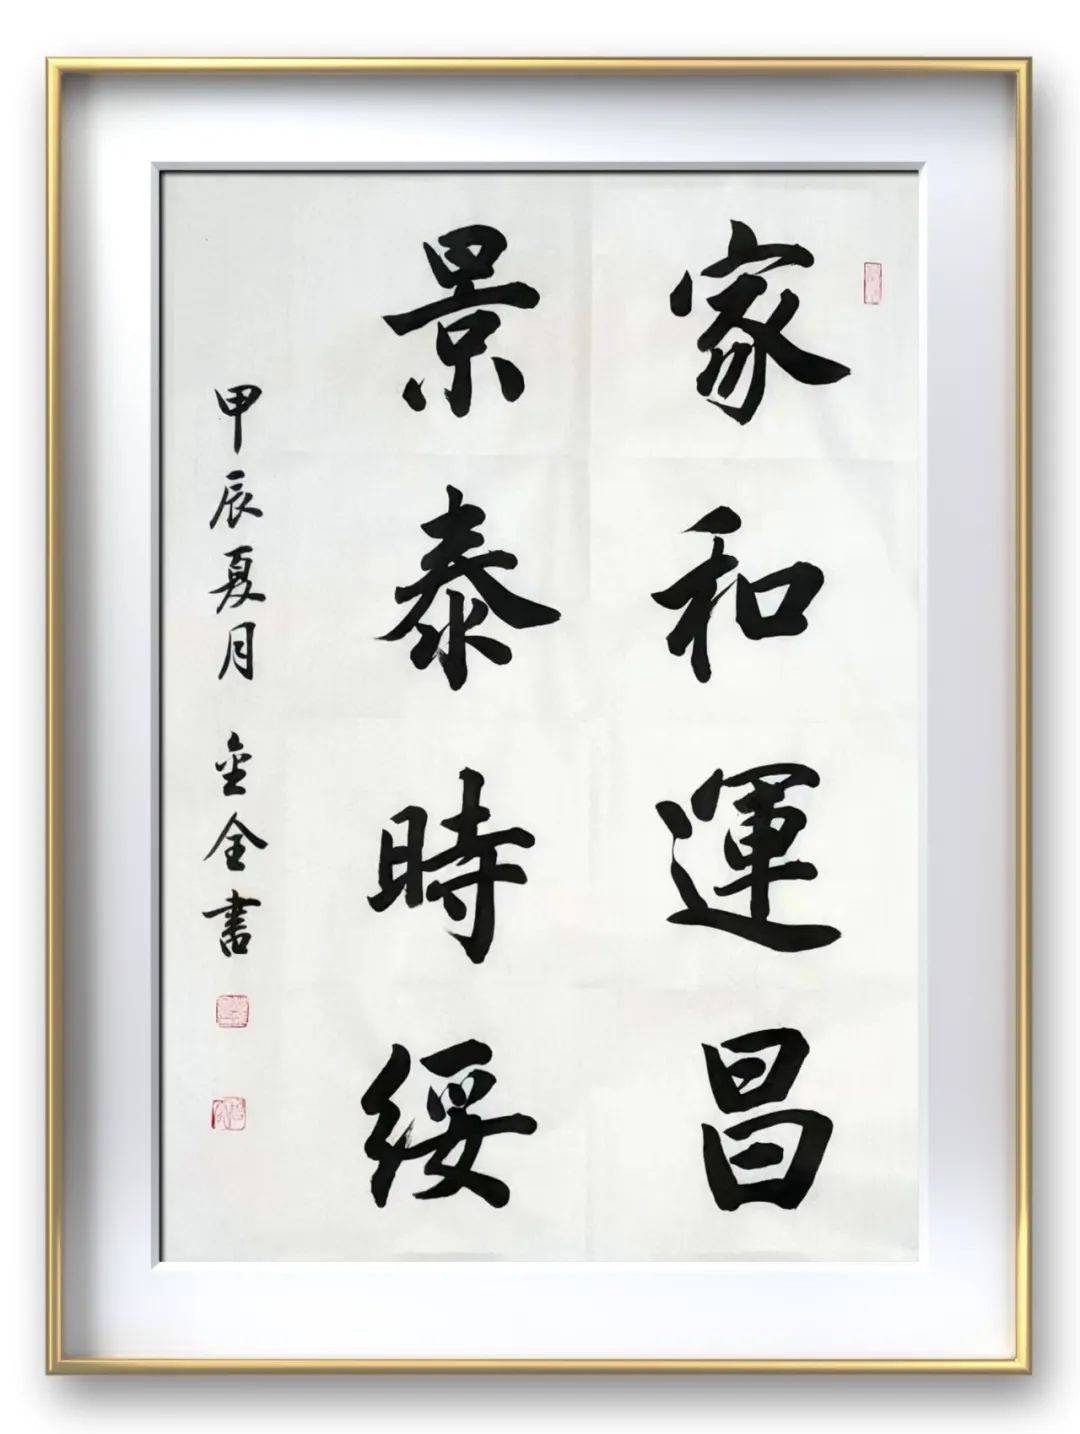 家和運昌
景泰時綏
甲辰夏月 金全書